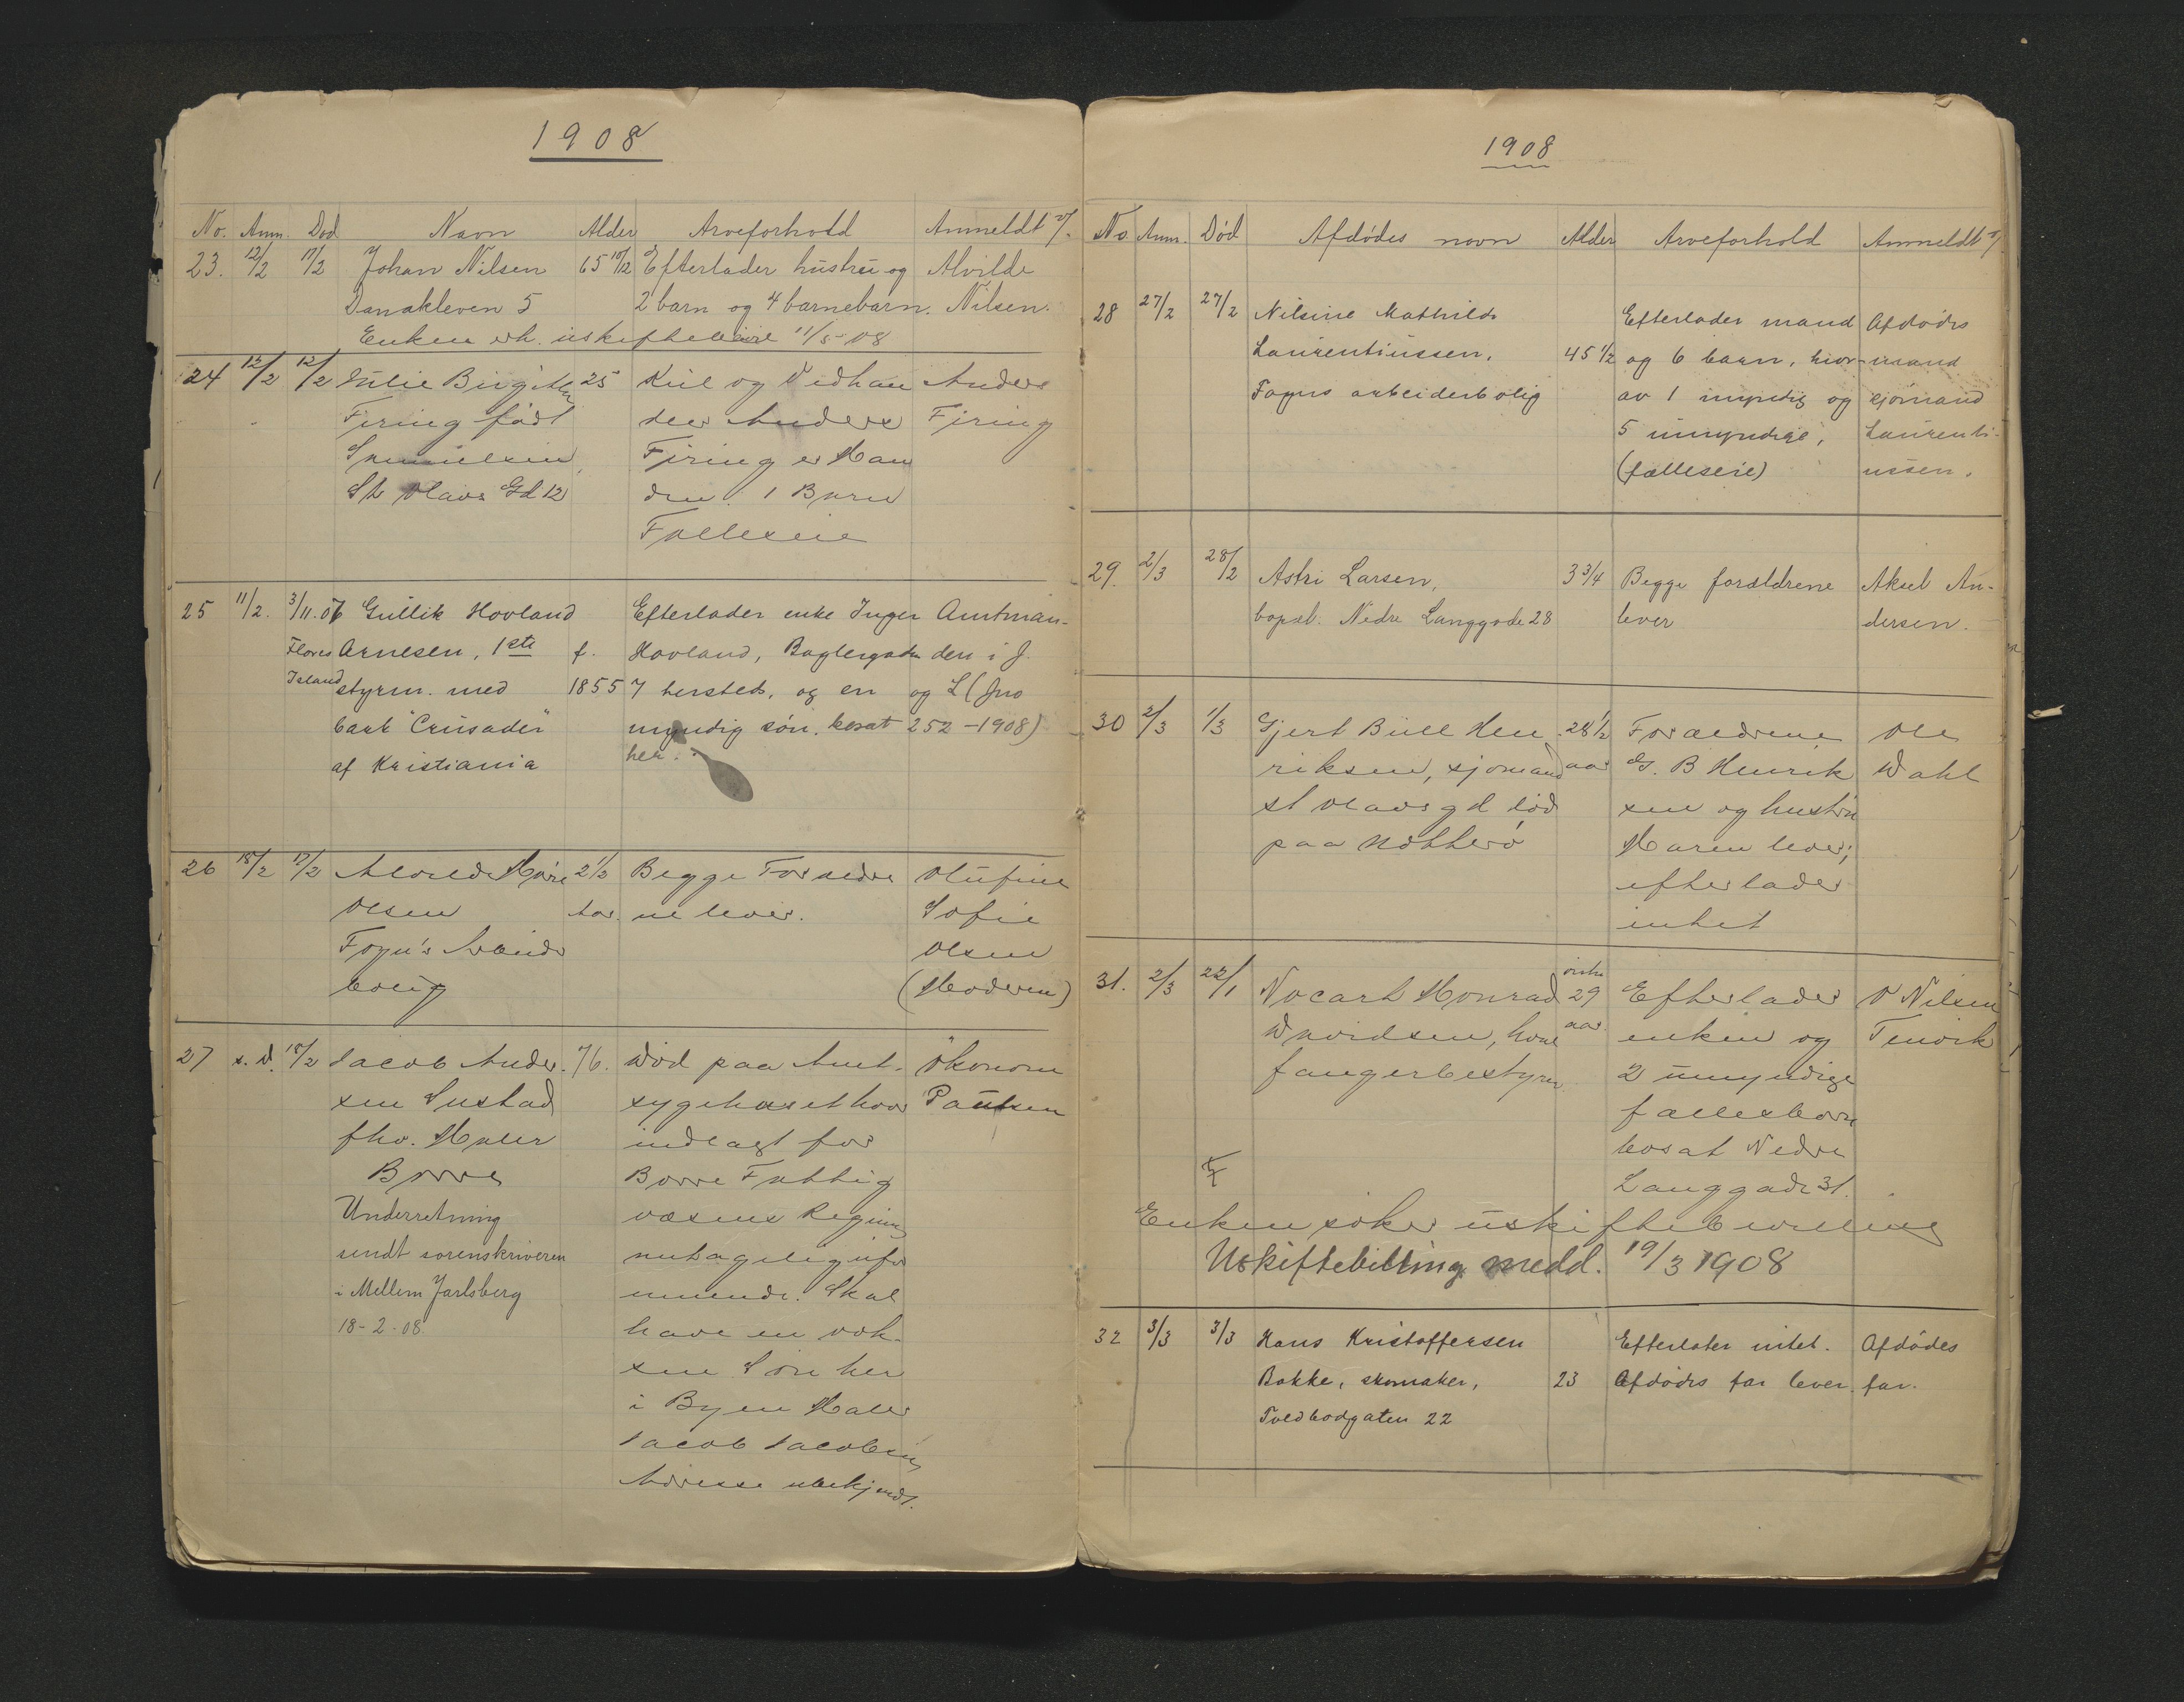 1908
No. Anm. Død Navn Alder Arveforhold Anmeldt v/.
23. 12/2 11/2 Johan Nilsen 65 10/12 Efterlader hustru og Alvilde
Danakleven 5 2 barn og 4 barnebarn. Nilsen.
Enken erh. uskiftebevill 11/5-08
24 12/2 12/2 Julie Birgitte 25 Kul og Vedhan Anders
Firing født dler Anders Firing
Samuelsen Firing er Man
St Olavs Gd 12 den. 1 Barn
Fælleseie
25 11/2. 3/11.07 Gullik Hovland Efterlader enke Inger Amtman-
Flores Arnesen, 1ste f. Hovland, Baglergaten den i J.
Island styrm. med 1855 7 hersteds, og en og L (Jno
bark "Crusader" myndig søn, bosat 252-1908)
af Kristiania her.
26 18/2 17/2 Olsen 2 1/2 Begge Foreldre Olufine
aar. ne lever. Sofie
Foyn's Arbeider Olsen
bolig (Moderen)
27 s.d. 18/2 Jacob Ander- 76. Død paa Amt- Økonom
sen Sustad sygehuset hvor Paulsen
fhv. Maler indlagt for
Borre Borre Fattig
Underretning væsens Regning
sendt sorenskriveren
i Mellem Jarlsberg Skal
18-2-08. have en vok-
sen Søn her
i Byen Maler
Jacob Jacobsen
Adresse ubekjendt.
1908
No Anm. Død Afdødes navn Alder Arveforhold Anmeldt v/
28 27/2 27/2 Nilsine Mathilde Efterlader mand Afdødes
Laurentiussen, 45 1/2 og 6 barn, hvor- mand
Foyns arbeiderbolig av 1 myndig og sjømand
5 umyndige, Laurenti-
(fælleseie) ussen.
29. 2/3 28/2 Astri Larsen, 3 3/4 Begge forældrene Aksel An-
bopæl. Nedre Langgade 28 lever dersen.
30 2/3 1/3 Gjert Bull Hen- 28 1/2 Forældrene Ole
riksen, sjømand aar G. B Henrik Dahl
St Olavsgd død sen og hustru
paa Nøtterø Maren lever;
efterlader
intet
31. 2/3 22/1 Nocart Monrad 29 Efterlader O Nilsen
Davidsen, hval aar. enken og Tenvik
fangerbestyrer. 2 umyndige
fællesbarn
bosat Nedre
Langgade 31.
Enken søker uskiftebevilling
Uskiftebilling medd. 19/3 1908
32 3/3 3/3 Hans Kristoffersen Efterlater intet. Afdødes
Bakke, skomaker, 23 Afdødes far lever. far.
Toldbodgaten 22